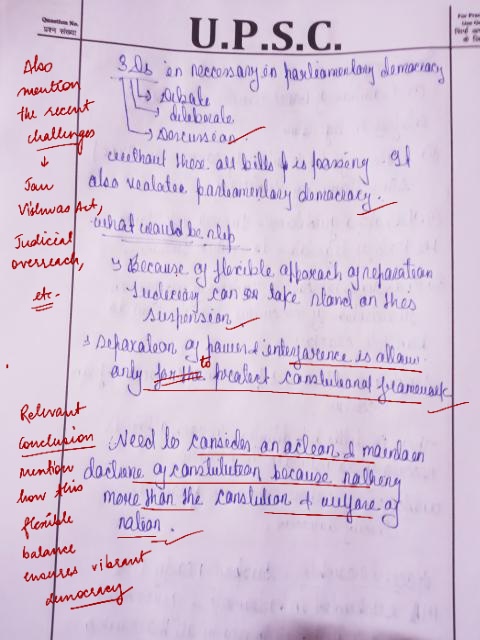 Question No.
प्रश्न संख्या
U.P.S.C.
For Pra
Use O
Also
mention
the recent
challenges
↓
Jan
Vishwas Act,
Judicial
overreach,
etc.
3 Ds in neccessary in parliamentary democracy
→ Debate
→ deliberate
→ Discussion
without these all bills is passing. It
also voalates parliamentary democracy.
what would be
→ Because of flexible approach of separation
Judeciary can take stand on
suspension
→ separation of power & interference is allow
only for the to protect constitutional framework
Relevant
Conclusion
mention
how this
flexible
balance
ensures vibrant
democracy
Need to consider an action & maintain
doctrine of constitution because nothing
more than the constitution & welfare of
nation.